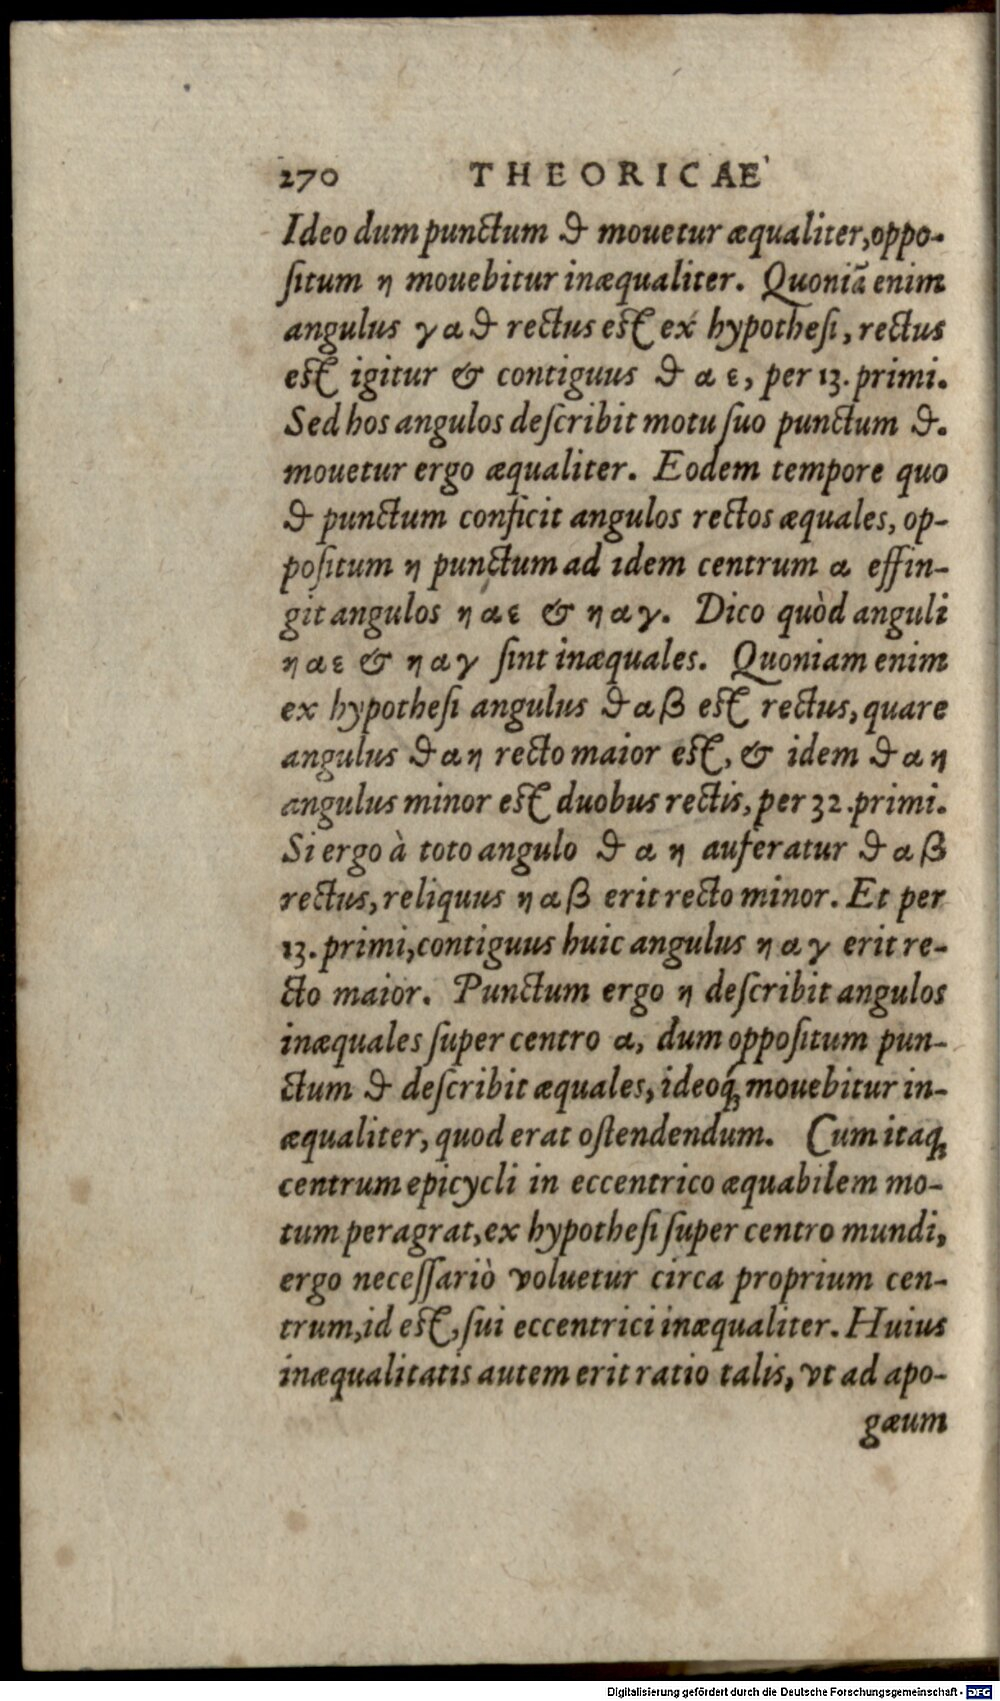 270 THEORICAE
Ideo dum punctum ϑ mouetur æqualiter, oppo-
ſitum η mouebitur inæqualiter. Quoniã enim
angulus γ α ϑ rectus eſt ex hypotheſi, rectus
eſt igitur & contiguus ϑ α ε, per 13. primi.
Sed hos angulos deſcribit motu ſuo punctum ϑ.
mouetur ergo æqualiter. Eodem tempore quo
ϑ punctum conficit angulos rectos æquales, op-
poſitum η punctum ad idem centrum α effin-
git angulos η α ε & η α γ. Dico quòd anguli
η α ε & η α γ ſint inæquales. Quoniam enim
ex hypotheſi angulus ϑ α β eſt rectus, quare
angulus ϑ α η recto maior eſt, & idem ϑ α η
angulus minor eſt duobus rectis, per 32. primi.
Si ergo à toto angulo ϑ α η auferatur ϑ α β
rectus, reliquus η α β erit recto minor. Et per
13. primi, contiguus huic angulus η α γ erit re-
cto maior. Punctum ergo η deſcribit angulos
inæquales ſuper centro α, dum oppoſitum pun-
ctum ϑ deſcribit æquales, ideoq́; mouebitur in-
æqualiter, quod erat oſtendendum. Cum itaq;
centrum epicycli in eccentrico æquabilem mo-
tum peragrat, ex hypotheſi ſuper centro mundi,
ergo neceſſariò voluetur circa proprium cen-
trum, id eſt, ſui eccentrici inæqualiter. Huius
inæqualitatis autem erit ratio talis, vt ad apo-
gæum
Digitalisierung gefördert durch die Deutsche Forschungsgemeinschaft - DFG